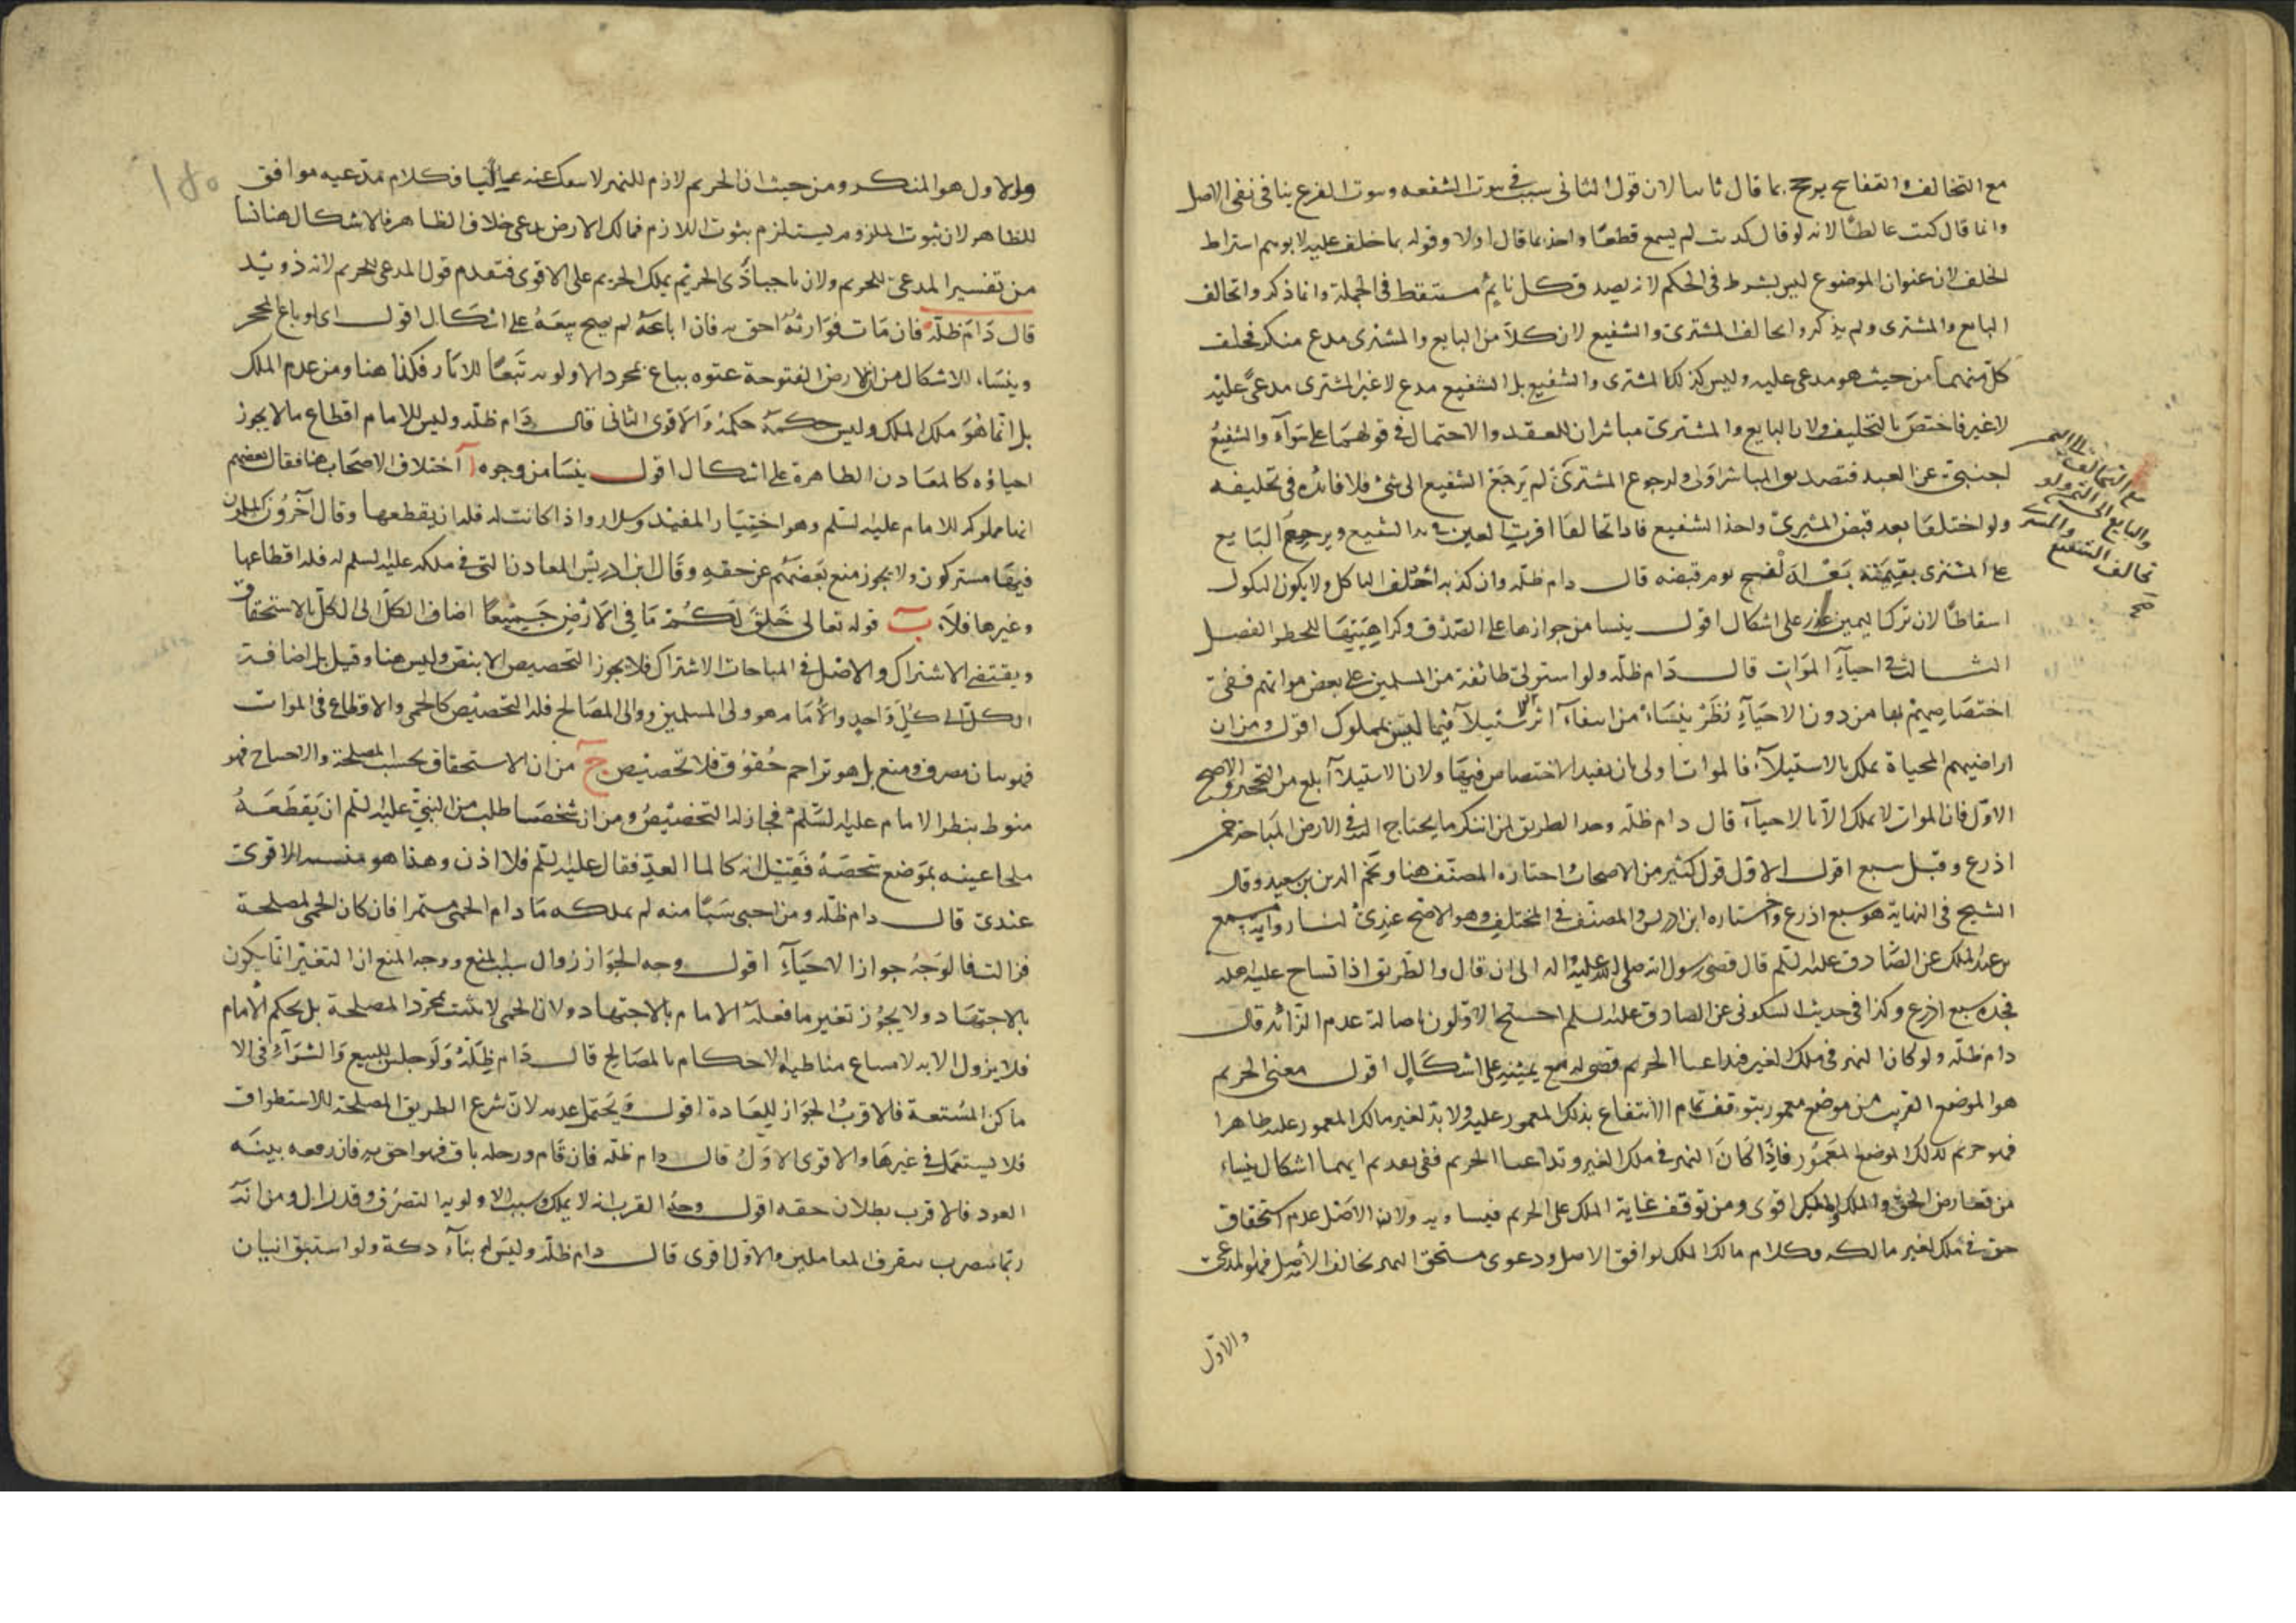 مع التخالف والتفاسخ يرجح بما قال ثانيا لان قول الثانى سبب فى ثبوت الشفعه وثبوت الفرع ينافى نفى الاصل
وانما قال كنت غالطا لانه لو قال كذبت لم يسمع قطعا واخذ بما قال اولا وقوله بما حلف عليه لا يوهم اشتراط
الحلف لان عنوان الموضوع ليس بشرط فى الحكم لانه يصدق كل نايم مستيقظ فى الجملة وانما ذكروا تحالف
البايع والمشترى ولم يذكروا تحالف المشترى والشفيع لان كلا من البايع والمشترى مدع منكر فحلف
كل منهما من حيث هو مدعى عليه وليس كذلك المشترى والشفيع بل الشفيع مدع لا غير المشترى مدعى عليه
لا غير فاختص بالتحليف ولان البايع والمشترى مباشران للعقد والاحتمال فى قولهما على سوآء والشفيع
اجنبى عن العقد فتصديق المباشر اولى ولرجوع المشترى لم يرجع الشفيع الى شئ فلا فائدة فى تحليفه
ولو اختلفا بعد قبض المشترى واخذ الشفيع فاذا تحالفا اقرت العين فى يد الشفيع ويرجع البايع
على المشترى بقيمته بعد الفسخ يوم قبضه قال دام ظله وان كذبه احلف الناكل ولا يكون النكول
اسقاطا لان ترك اليمين على اشكال اقول ينشا من جوازها على الصدق وكراهيتها للحظر الفصل
الثالث فى احيآء الموات قال دام ظله ولو استولى طائفة من المسلمين على بعض مواتهم ففى
اختصاصهم بها من دون الاحيآء نظر ينشاء من انتفآء اثر الاستيلآء فيما ليس بمملوك اقول ومن ان
اراضيهم المحياة تملك بالاستيلآء فالموات اولى بان يفيد الاختصاص فيها ولان الاستيلآء ابلغ من التحجير والاصح
الاول فان الموات لا يملك الا بالاحيآء قال دام ظله وحد الطريق لمن ابتكر ما يحتاج اليه فى الارض المباحة خمس
اذرع وقيل سبع اقول الاول قول كثير من الاصحاب اختاره المصنف هنا ونجم الدين بن سعيد وقال
الشيخ فى النهاية هو سبع اذرع واختاره ابن ادريس والمصنف فى المختلف وهو الاصح عندى لنا رواية مسمع
بن عبد الملك عن الصادق عليه السلم قال قضى رسول الله صلى الله عليه واله الى ان قال والطريق اذا تشاح عليه اهله
فحده سبع اذرع وكذا فى حديث السكونى عن الصادق عليه السلم احتج الاولون باصالة عدم الزائد قال
دام ظله ولو كان النهر فى ملك الغير فتداعيا الحريم قضى له مع يمينه على اشكال اقول معنى الحريم
هو الموضع القريب من موضع معمور يتوقف تمام الانتفاع بذلك المعمور عليه ولا بد لغير مالك المعمور عليه ظاهرا
فهو حريم لذلك الموضع المعمور فاذا كان النهر فى ملك الغير وتداعيا الحريم ففى تقديم ايهما اشكال ينشاء
من تعارض الحق والملك والملك اقوى ومن توقف غاية الملك على الحريم فيساويه ولان الاصل عدم استحقاق
حق فى ملك لغير مالكه وكلام مالك الملك يوافق الاصل ودعوى مستحق النهر يخالف الاصل فهو المدعى
والاول
مع التحالف
والبايع الى
والمشترى
تحالف الشفيع
صح
والاول هو المنكر ومن حيث ان الحريم لازم للنهر لا ينفك عنه غالبا فكلام مدعيه موافق
للظاهر لان ثبوت الملزوم يستلزم ثبوت اللازم فمالك الارض يدعى خلاف الظاهر فالاشكال هنا نشا
من تفسير المدعى للحريم ولان صاحب ذى الحريم يملك الحريم على الاقوى فتقدم قول المدعى للحريم لانه ذو يد
قال دام ظله فان مات فوارثه احق به فان باعه لم يصح بيعه على اشكال اقول اى لو باع المحجر
وينشاء الاشكال من ان الارض المفتوحة عنوة يباع بمجرد الاولويه تبعا للاثار فكذا هنا ومن عدم الملك
بل انما هو ملك الملك وليس حكمه حكمه والاقوى الثانى قال دام ظله وليس للامام اقطاع ما لا يجوز
احياؤه كالمعادن الظاهرة على اشكال اقول ينشا من وجوه آ اختلاف الاصحاب هنا فقال بعضهم
انها مملوكه للامام عليه السلم وهو اختيار المفيد وسلار واذا كانت له فله ان يقطعها وقال آخرون المسلمون
فيها مشتركون ولا يجوز منع بعضهم عن حقه وقال ابن ادريس المعادن التى فى ملكه عليه السلم له فله اقطاعها
وغيرها فلا ب قوله تعالى خلق لكم ما فى الارض جميعا اضاف الكل الى الكل بالاستحقاق
ويقتضى الاشتراك والاصل فى المباحات الاشتراك فلا يجوز التخصيص الا بنص وليس هنا وقيل بل اضافة
الكل الى كل واحد والامام هو ولى المسلمين ووالى المصالح فله التخصيص كالحمى والاقطاع فى الموات
فهو بيان مصرف ومنع بل هو تزاحم حقوق فلا تخصيص ج من ان الاستحقاق بحسب المصلحة والاحتياج فهو
منوط بنظر الامام عليه السلم فجاز له التخصيص ومن ان شخصا طلب من النبى عليه السلم ان يقطعه
ملحا عينه بموضع شخصه فقيل انه كالماء العد فقال عليه السلم فلا اذن وهذا هو الاقوى
عندى قال دام ظله ومن احيى شيئا منه لم يملكه ما دام الحمى مستمرا فان كان الحمى لمصلحة
فزالت فالوجه جواز الاحيآء اقول وجه الجواز زوال سبب المنع ووجه المنع ان التغير انما يكون
بالاجتهاد ولا يجوز تغير ما فعله الامام بالاجتهاد ولان الحمى لا يثبت بمجرد المصلحة بل بحكم الامام
فلا يزول الا به لامتناع مناطيه الاحكام بالمصالح قال دام ظله ولو جلس للبيع والشرآء فى الا
ماكن المتسعة فالاقرب الجواز للعادة اقول ويحتمل عدمه لان شرع الطريق المصلحة للاستطراق
فلا يستعمل فى غيرها والاقوى الاول قال دام ظله فان قام ورحله باق فهو احق به فان رفعه بنيه
العود فالاقرب بطلان حقه اقول وجه القرب انه لا يملك وسبب الاولويه التصرف وقد زال ومن انه
ربما يتضرر بتفرق المعاملين والاول اقوى قال دام ظله وليس له بنآء دكة ولو استبق اثنان